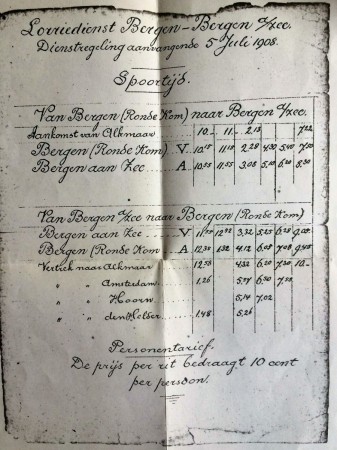 Lorriedienst Bergen - Bergen a/zee.
Dienstregeling aanvangende 5 Juli 1908.
Spoortijd.
Van Bergen (Ronde Kom) naar Bergen a/zee.
Aankomst van Alkmaar 10.- 11.- 2.13 7.22
Bergen (Ronde Kom) V. 10.15 11.15 2.28 4.30 5.40 7.50
Bergen aan Zee A 10.55 11.55 3.08 5.10 6.20 8.30
Van Bergen a/zee naar Bergen (Ronde Kom)
Bergen aan zee V 12.32 3.32 5.25 6.28
Bergen (Ronde Kom) A 4.12 6.08 7.08
Vertrek naar Alkmaar 12.58 4.32 6.20 7.20 10.-
" " Amsterdam 1.26 6.50
" " Hoorn 5.14 7.02
" " den Helder 1.48 5.26
Personentarief.
De prijs per rit bedraagt 10 cent
per persoon.